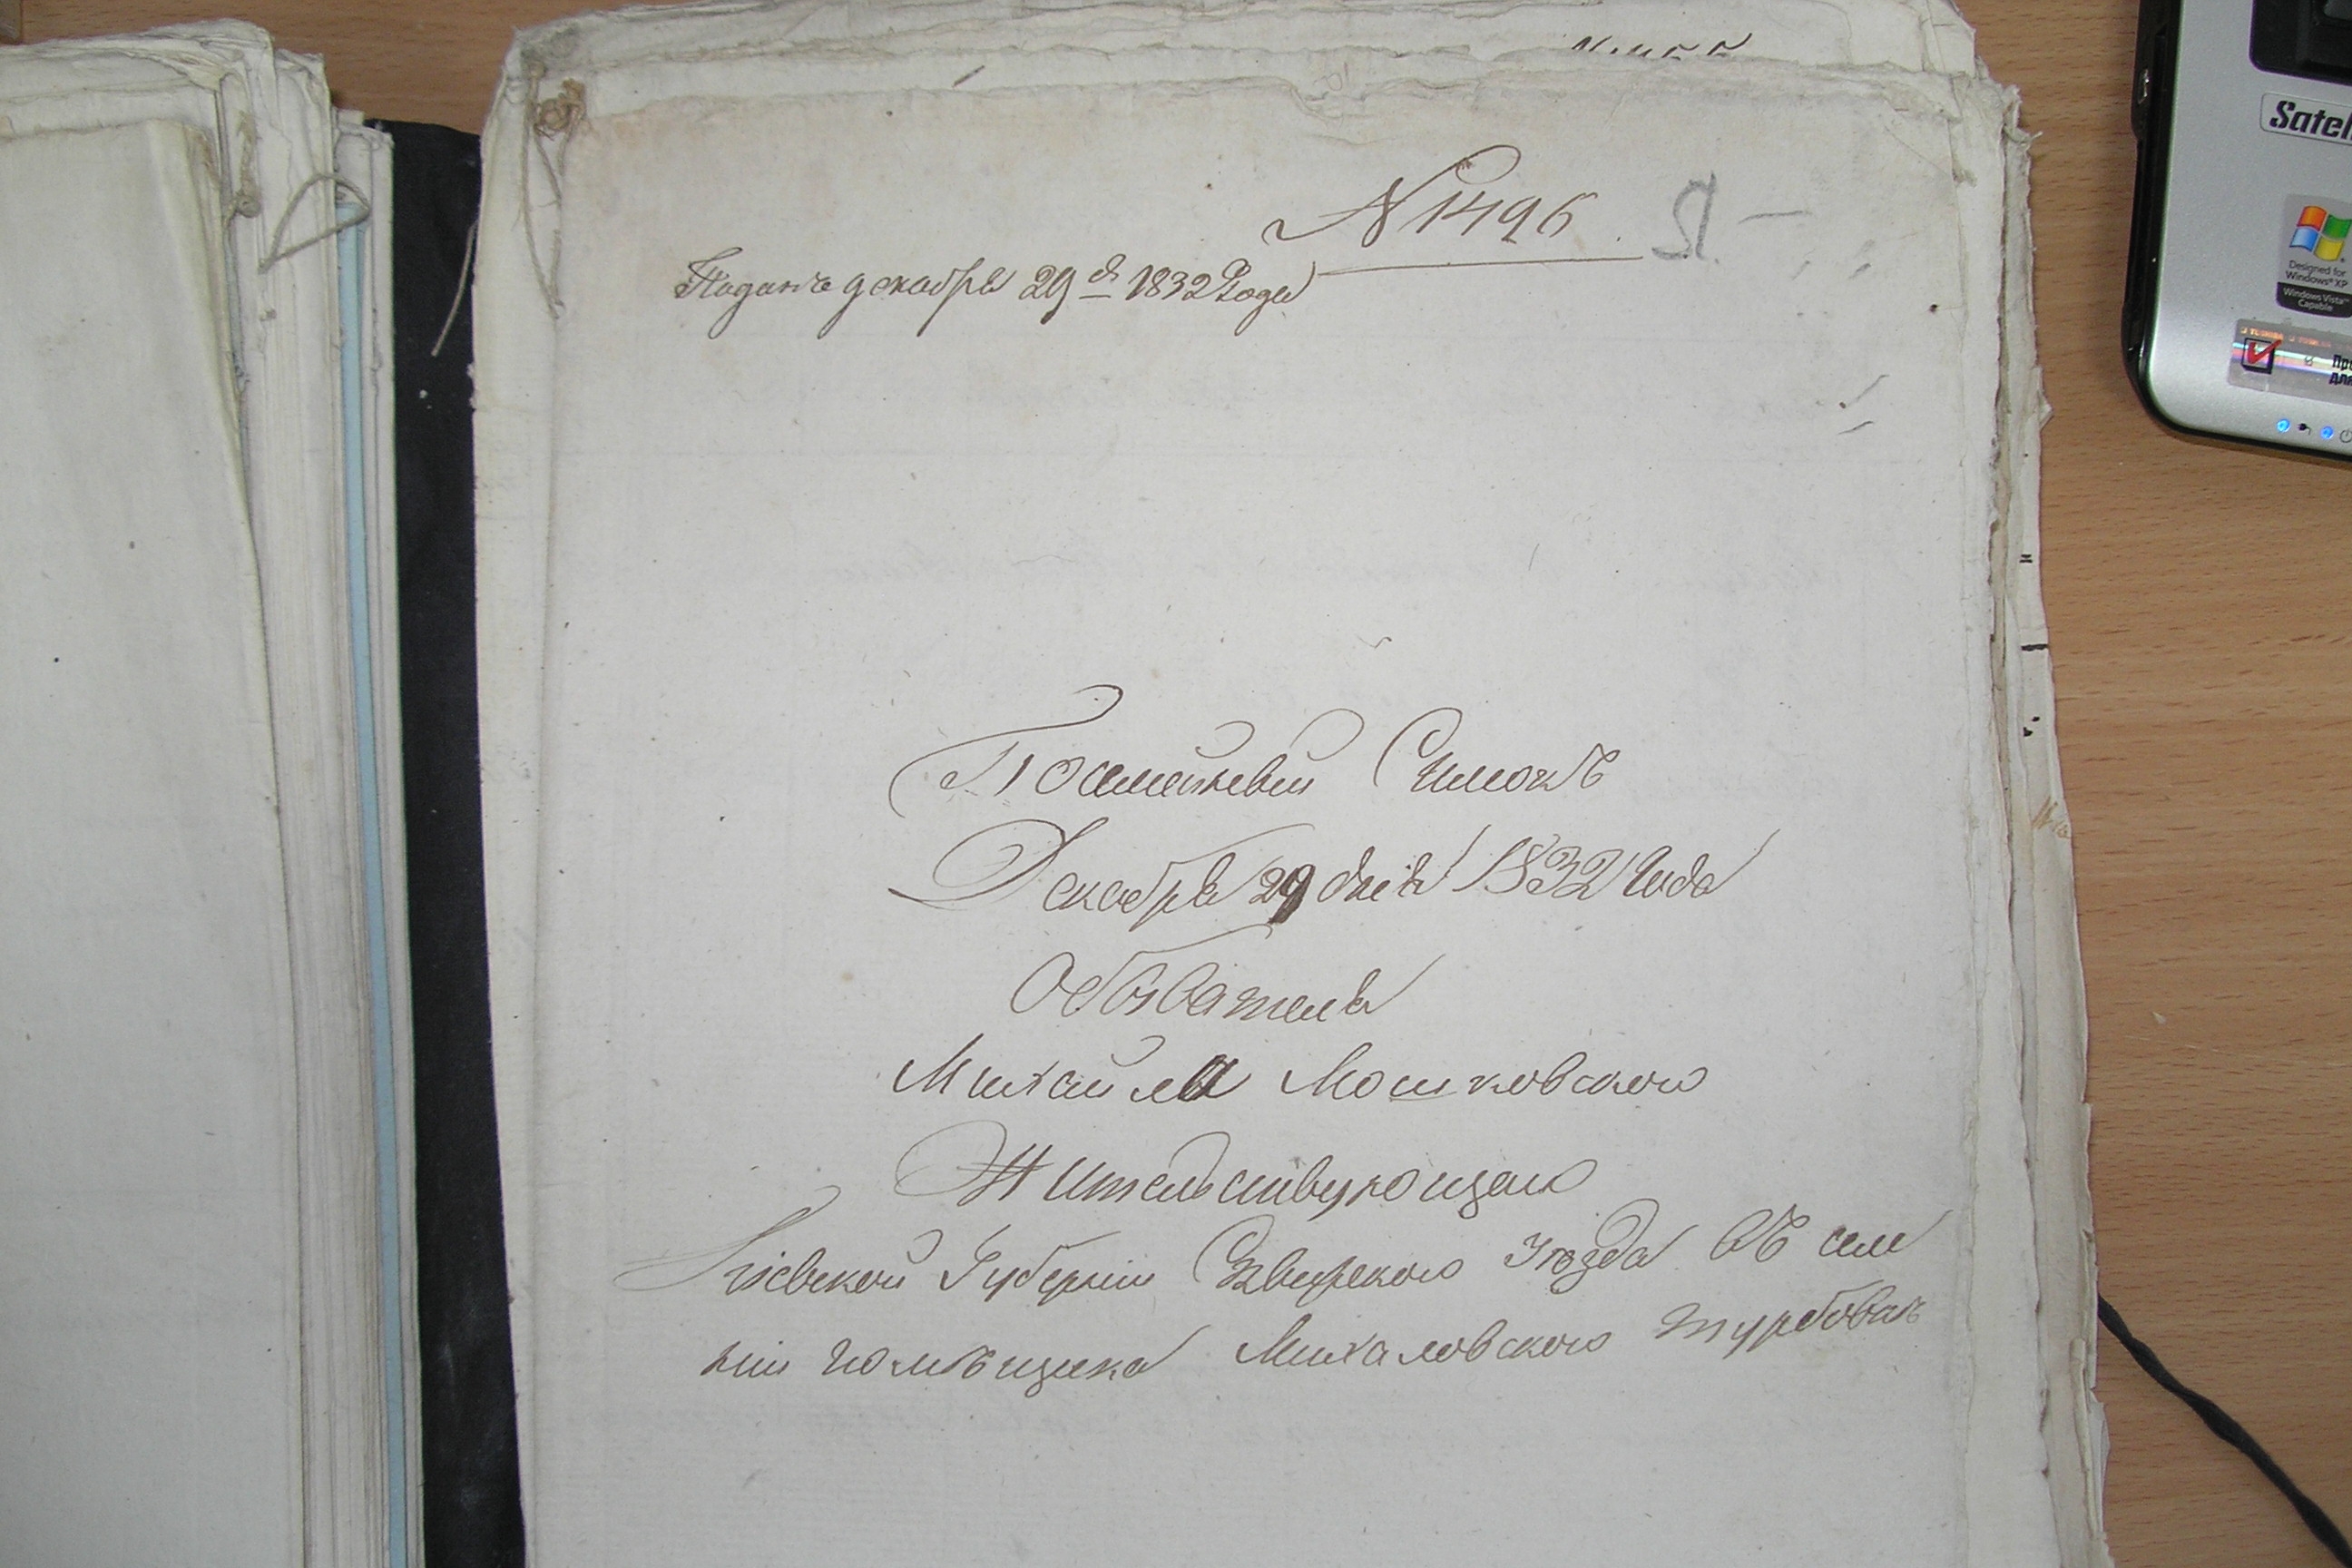 N 1496.
Поданъ декабря 29 д 1832 Года
Посемейный Списокъ
Декабря 29 дня 1832 Года
Обывателя
Михайла Мошковского
Жительствующаго
Кіевской Губерніи Сквирского Уѣзда въ селе
ніи помѣщика Михаловского Турбовкѣ
Satel
Designed for
Windows® XP
Windows Vista™
Capable